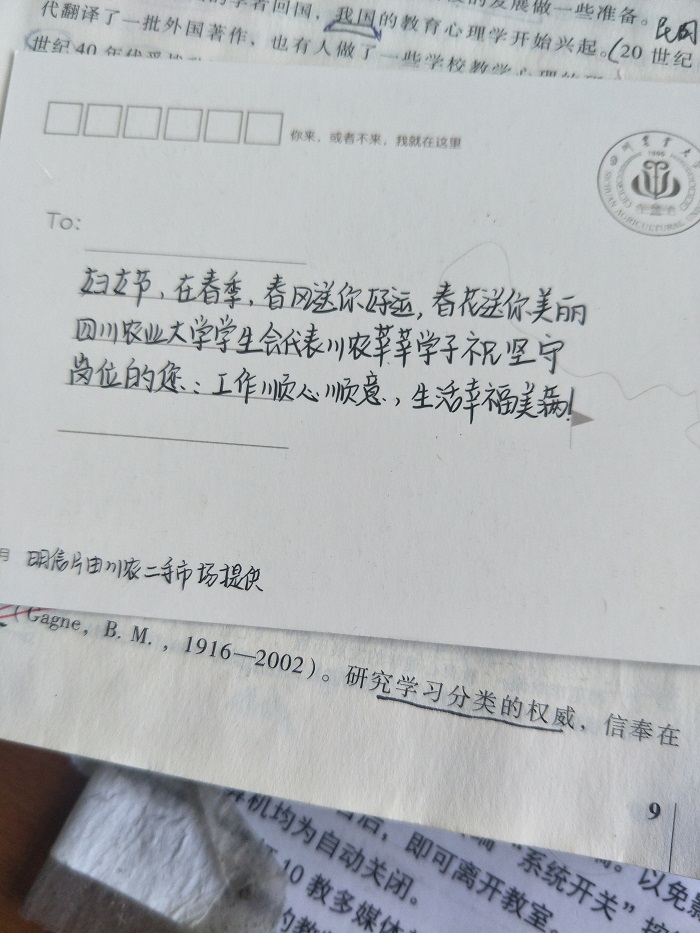 代翻译了一批外国著作，也有人做了一些学校教学心理的
学者回国，我国的教育心理学开始兴起。(20 世纪
的发展做一些准备。
民国
世纪 40 年代
你来，或者不来，我就在这里
四川农业大学
1906
SICHUAN AGRICULTURAL
To:
妇女节，在春季，春风送你好运，春花送你美丽
四川农业大学学生会代表川农莘莘学子祝坚守
岗位的您：工作顺心顺意，生活幸福美满！
月
明信片由川农二手市场提供
(Gagne, B. M. , 1916—2002)。研究学习分类的权威，信奉在
9
算机均为自动关闭。
后，即可离开教室。
“系统开关”按
以免
10 教多媒体
的教